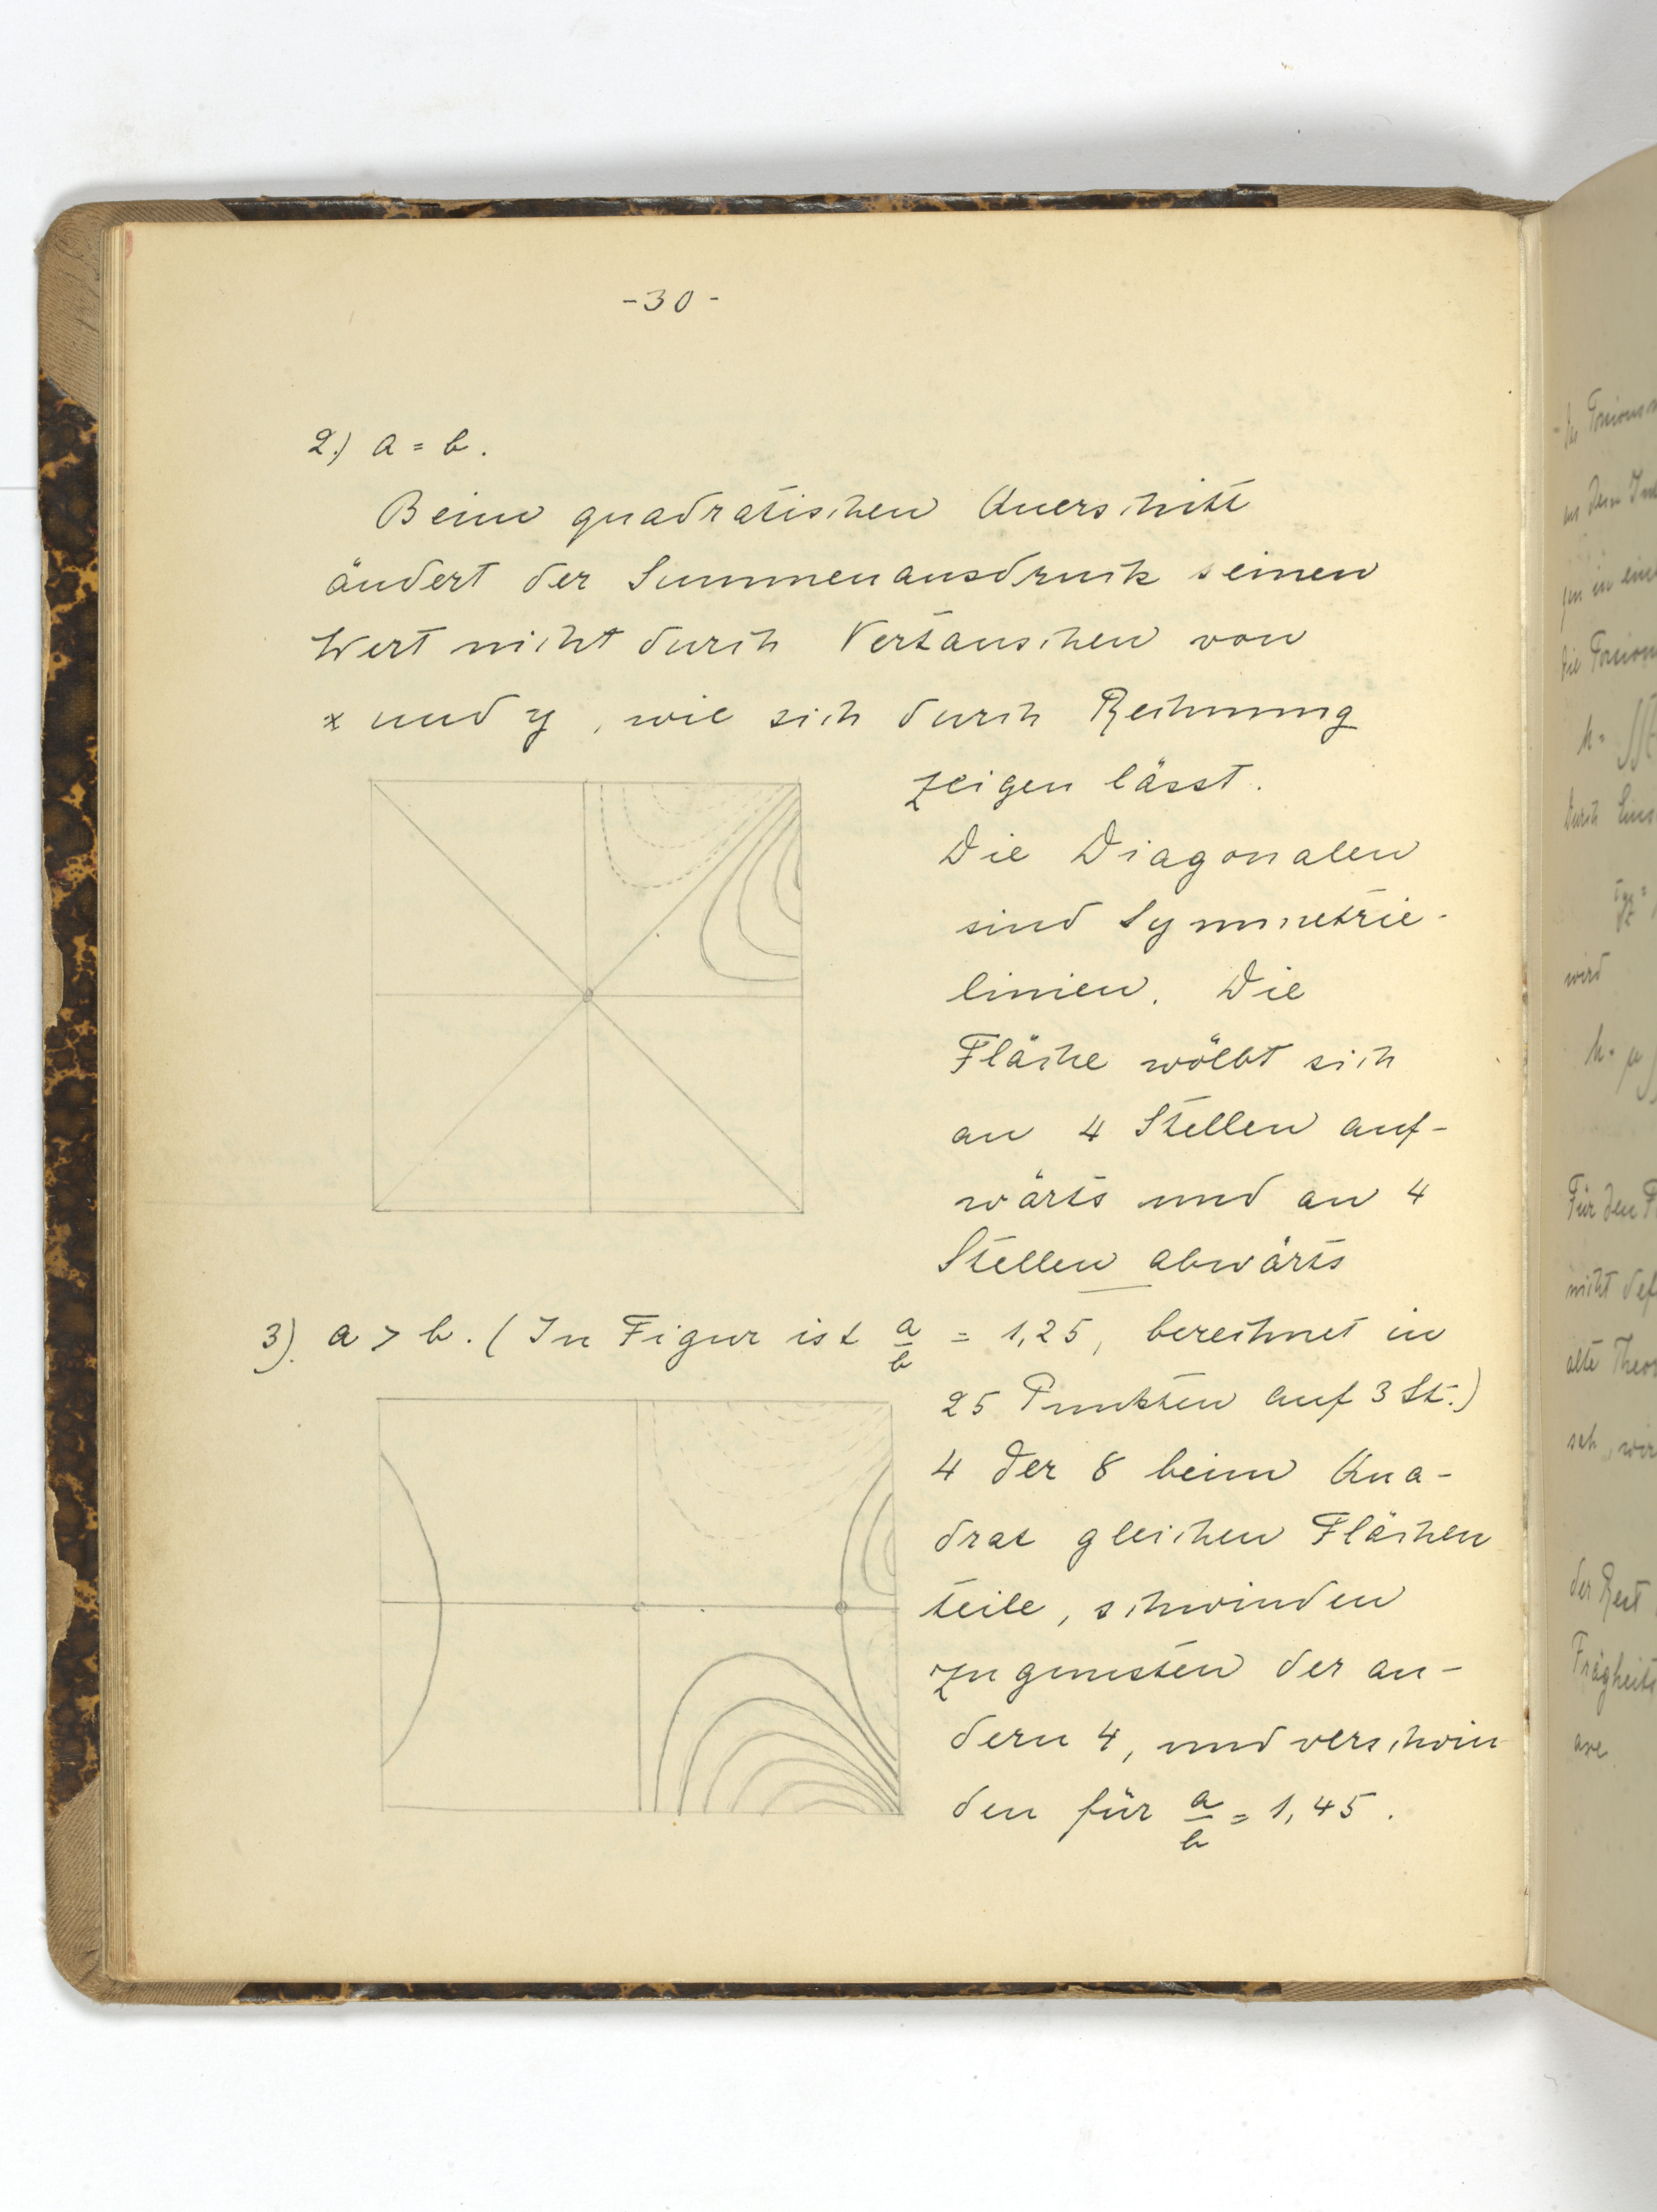 -30-
2.) a = b.
Beim quadratischen Querschnitt
ändert der Summenausdruck seinen
Wert nicht durch Vertauschen von
x und y, wie sich durch Rechnung
zeigen lässt.
Die Diagonalen
sind Symmetrie-
linien. Die
Fläche wölbt sich
an 4 Stellen auf-
wärts und an 4
Stellen abwärts
3). a > b. (In Figur ist a/b = 1,25, berechnet in
25 Punkten auf 3 St.)
4 der 8 beim Qua-
drat gleichen Flächen
teile, schwinden
zu gunsten der an-
dern 4, und verschwin
den für a/b = 1,45.
wird
Für den
nicht
alte
der Rest